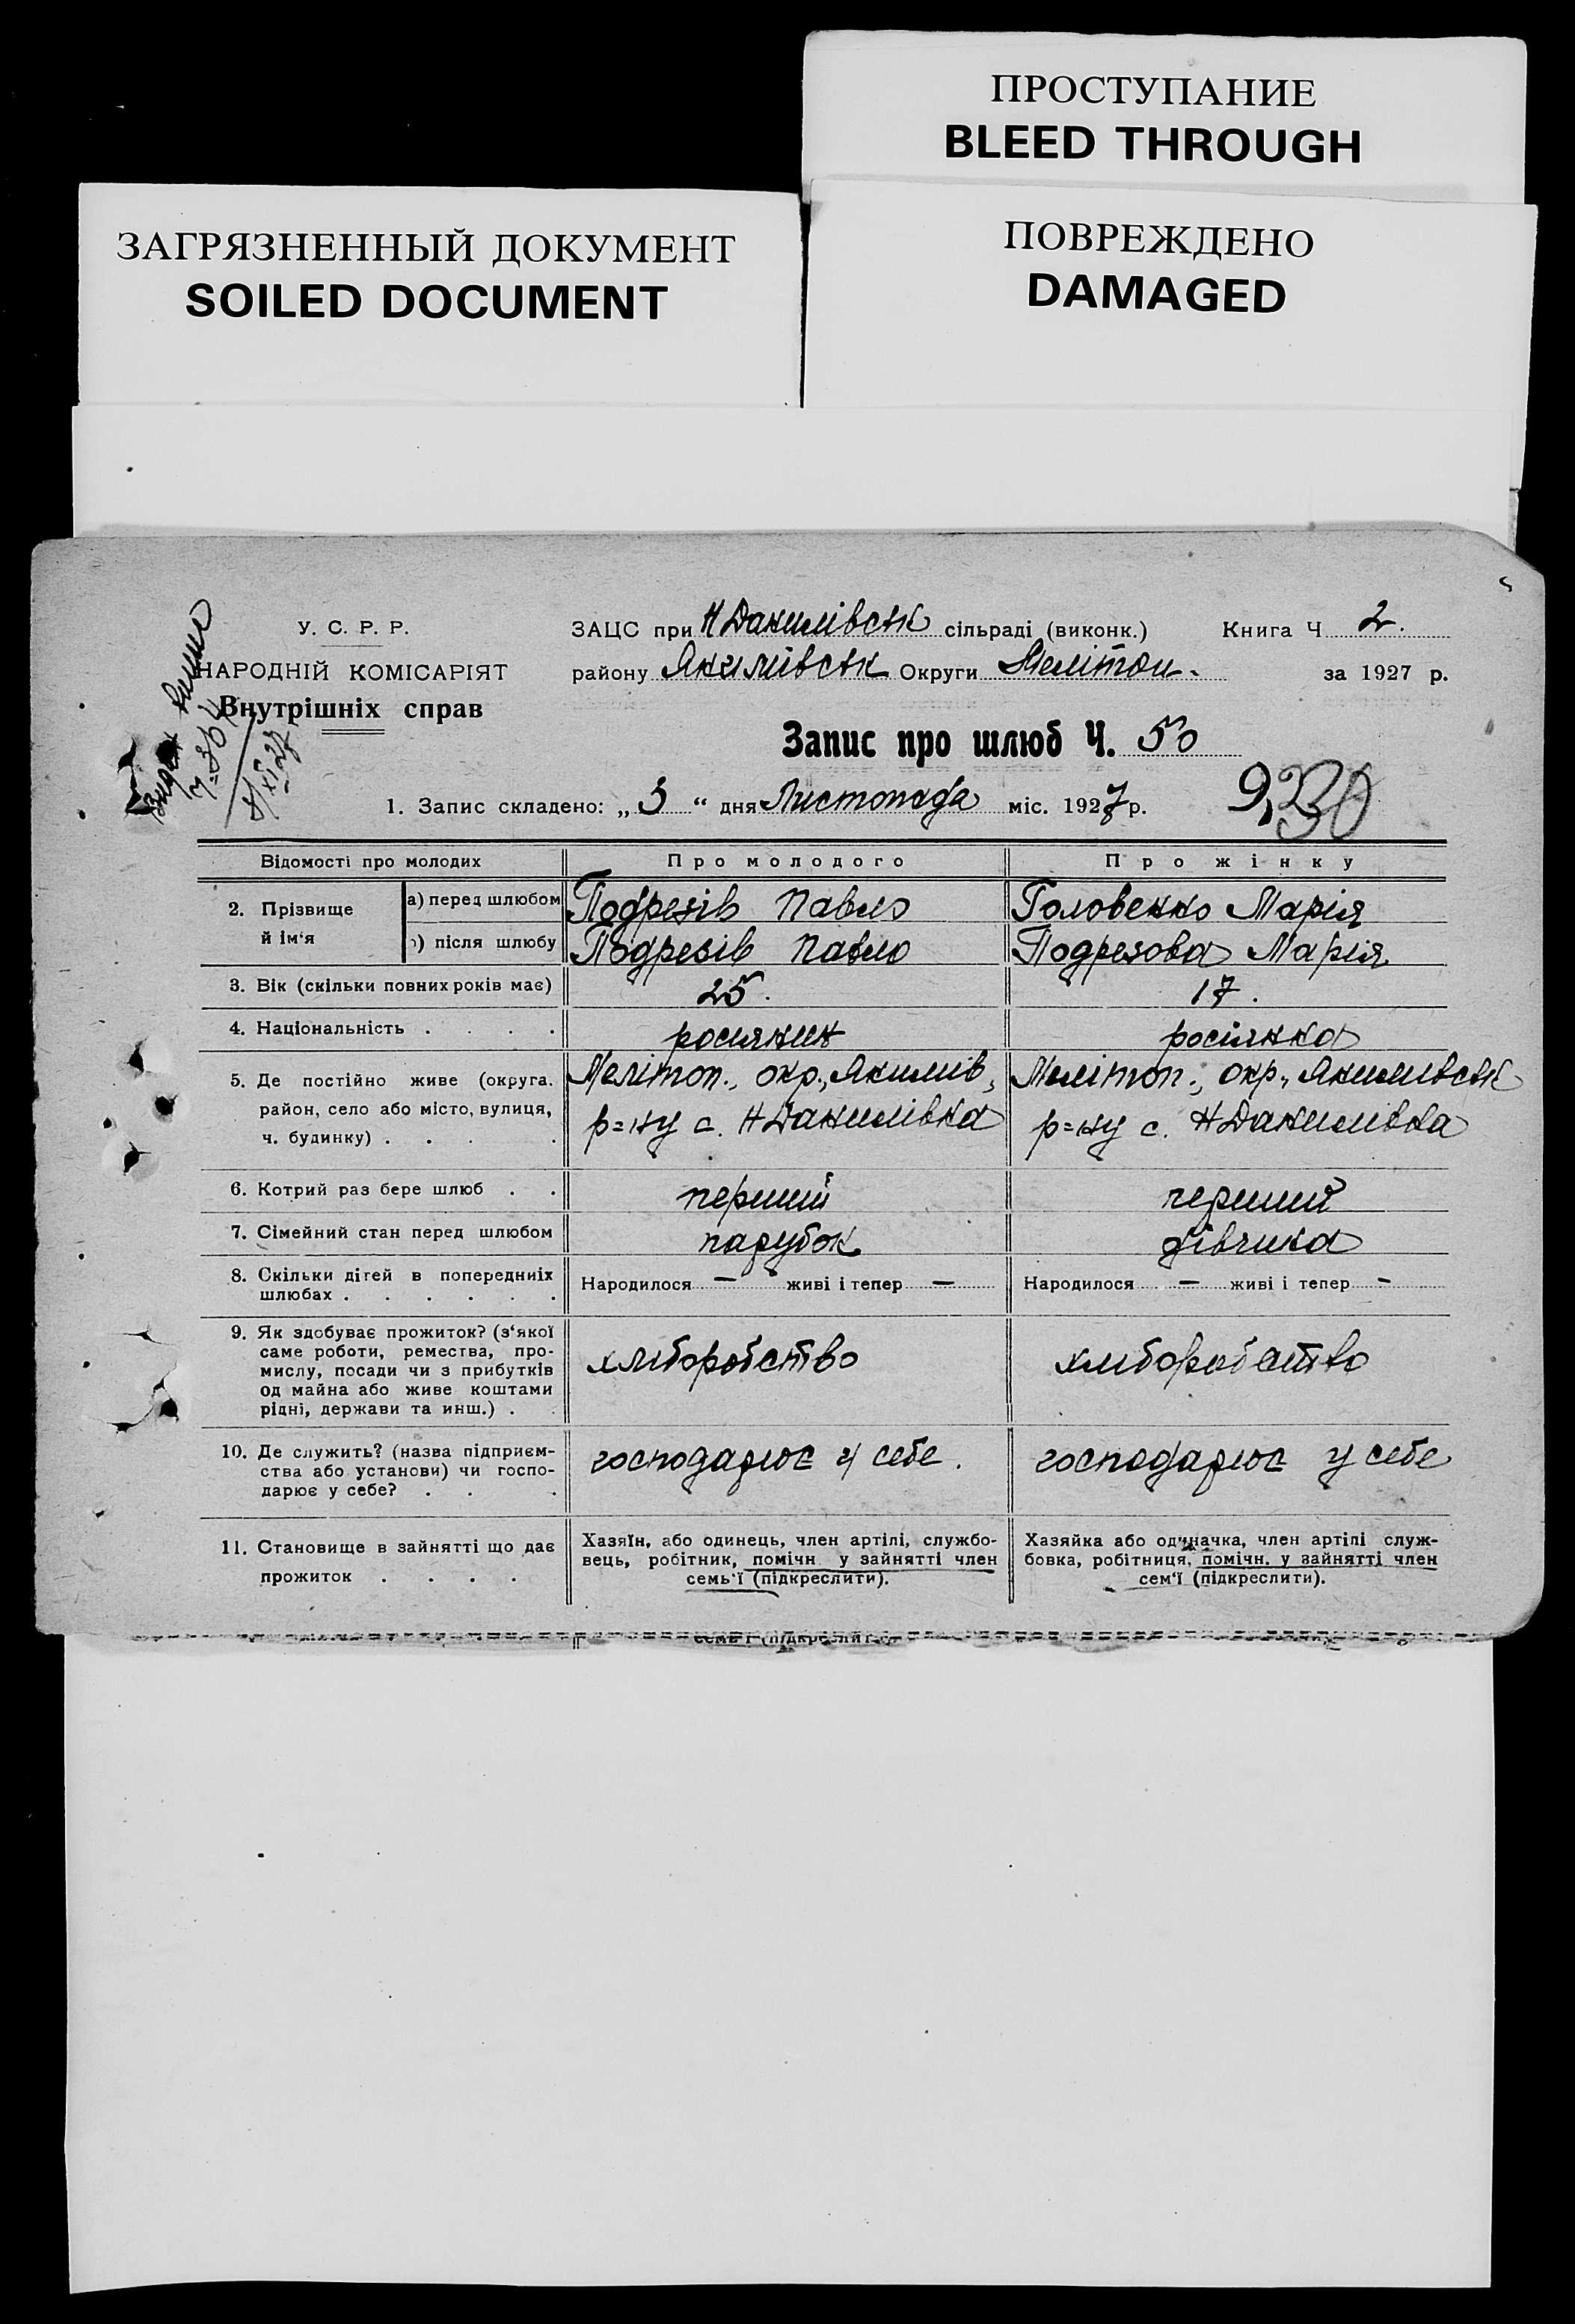 ПРОСТУПАНИЕ
BLEED THROUGH
ЗАГРЯЗНЕННЫЙ ДОКУМЕНТ
SOILED DOCUMENT
ПОВРЕЖДЕНО
DAMAGED
У. С. Р. Р.
НАРОДНІЙ КОМІСАРІЯТ
Внутрішніх справ
ЗАЦС при Н Данилівськ сільраді (виконк.) Книга Ч 2.
району Якимівськ Округи Мелітоп. за 1927 р.
Запис про шлюб Ч. 50
1. Запис складено: „ 3 “ дня Листопада міс. 1927 р.
Відомості про молодих Про молодого Про жінку
2. Прізвище й ім‘я
а) перед шлюбом Подрезів Павло Головенко Марія
) після шлюбу Подрезів Павло Подрезова Марія
3. Вік (скільки повних років має) 25. 17.
4. Національність . . . . росіянин росіянка
5. Де постійно живе (округа. Меліто­п., окр., Якимів, Мелітоп., окр., Якимівськ
район, село або місто, вулиця, р=ну с. Н Данилівка р=ну с. Н Данилівка
ч. будинку) . . . .
6. Котрий раз бере шлюб . . перший перший
7. Сімейний стан перед шлюбом парубок дівчина
8. Скільки дітей в попередниіх Народилося — живі і тепер — Народилося — живі і тепер -
шлюбах . . . . . .
9. Як здобуває прожиток? (з‘якої
саме роботи, ремества, про-
мислу, посади чи з прибутків хліборобство хліборобство
од майна або живе коштами
рідні, держави та инш.) . .
10. Де служить? (назва підприєм- господарює у себе. господарює у себе
ства або установи) чи госпо-
дарює у себе? . . .
11. Становище в зайнятті що дає
прожиток . . . .
Хазяїн, або одинець, член артілі, службо-
вець, робітник, помічн у зайнятті член
семь‘ї (підкреслити).
Хазяйка або одиначка, член артілі служ-
бовка, робітниця, помічн. у зайнятті член
сем‘ї (підкреслити).